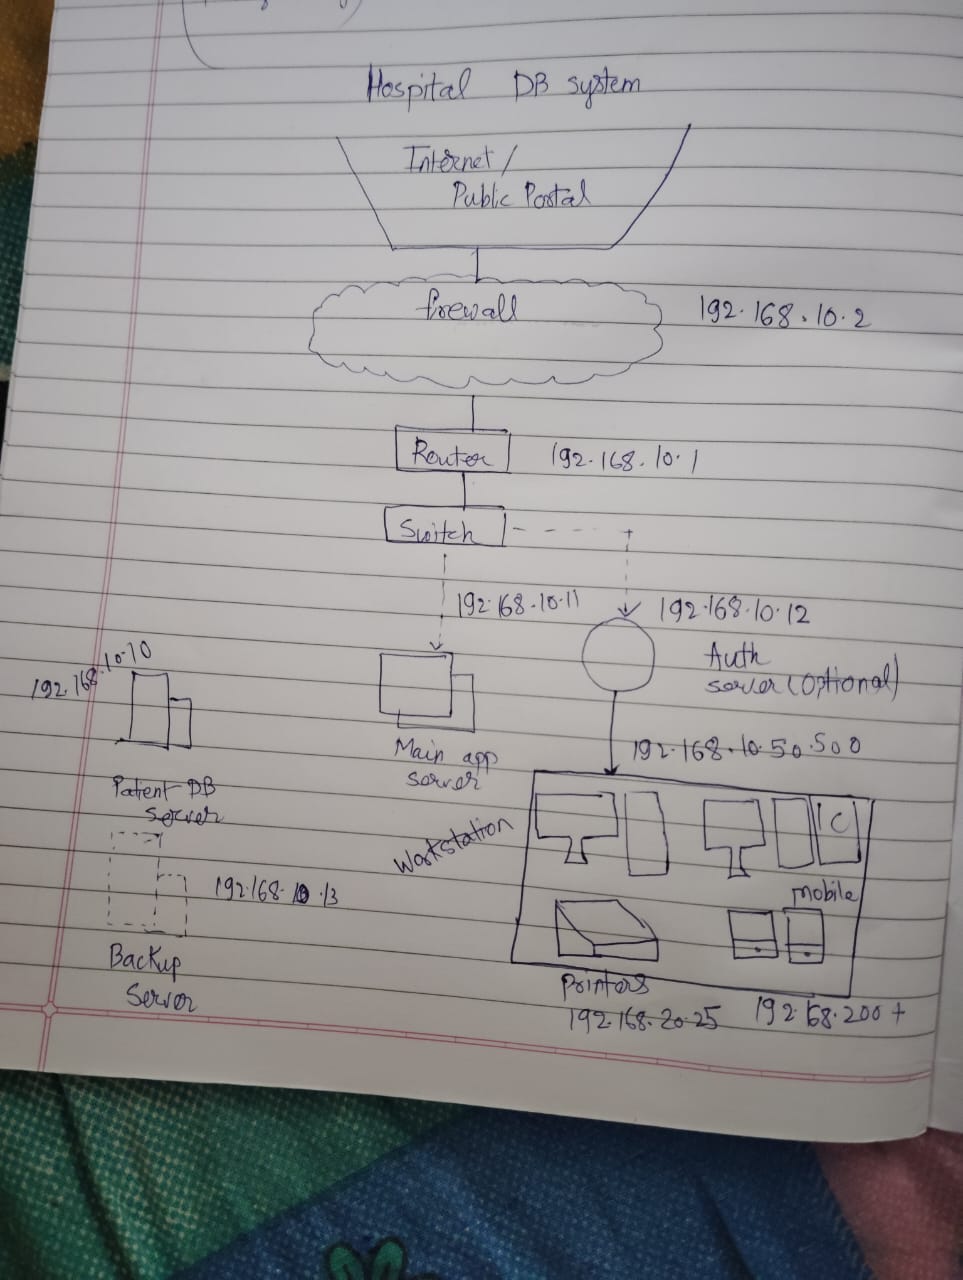 Hospital DB system
Internet /
Public Portal
firewall
192.168.10.2
Router
192.168.10.1
Switch
192.168.10.11
192.168.10.12
Auth
server (optional)
192.168.10.10
Main app
server
192.168.10.50.500
Patient DB
Server
Workstation
C
mobile
192.168.10.13
Backup
Server
Printers
192.168.20.25
192.68.200+